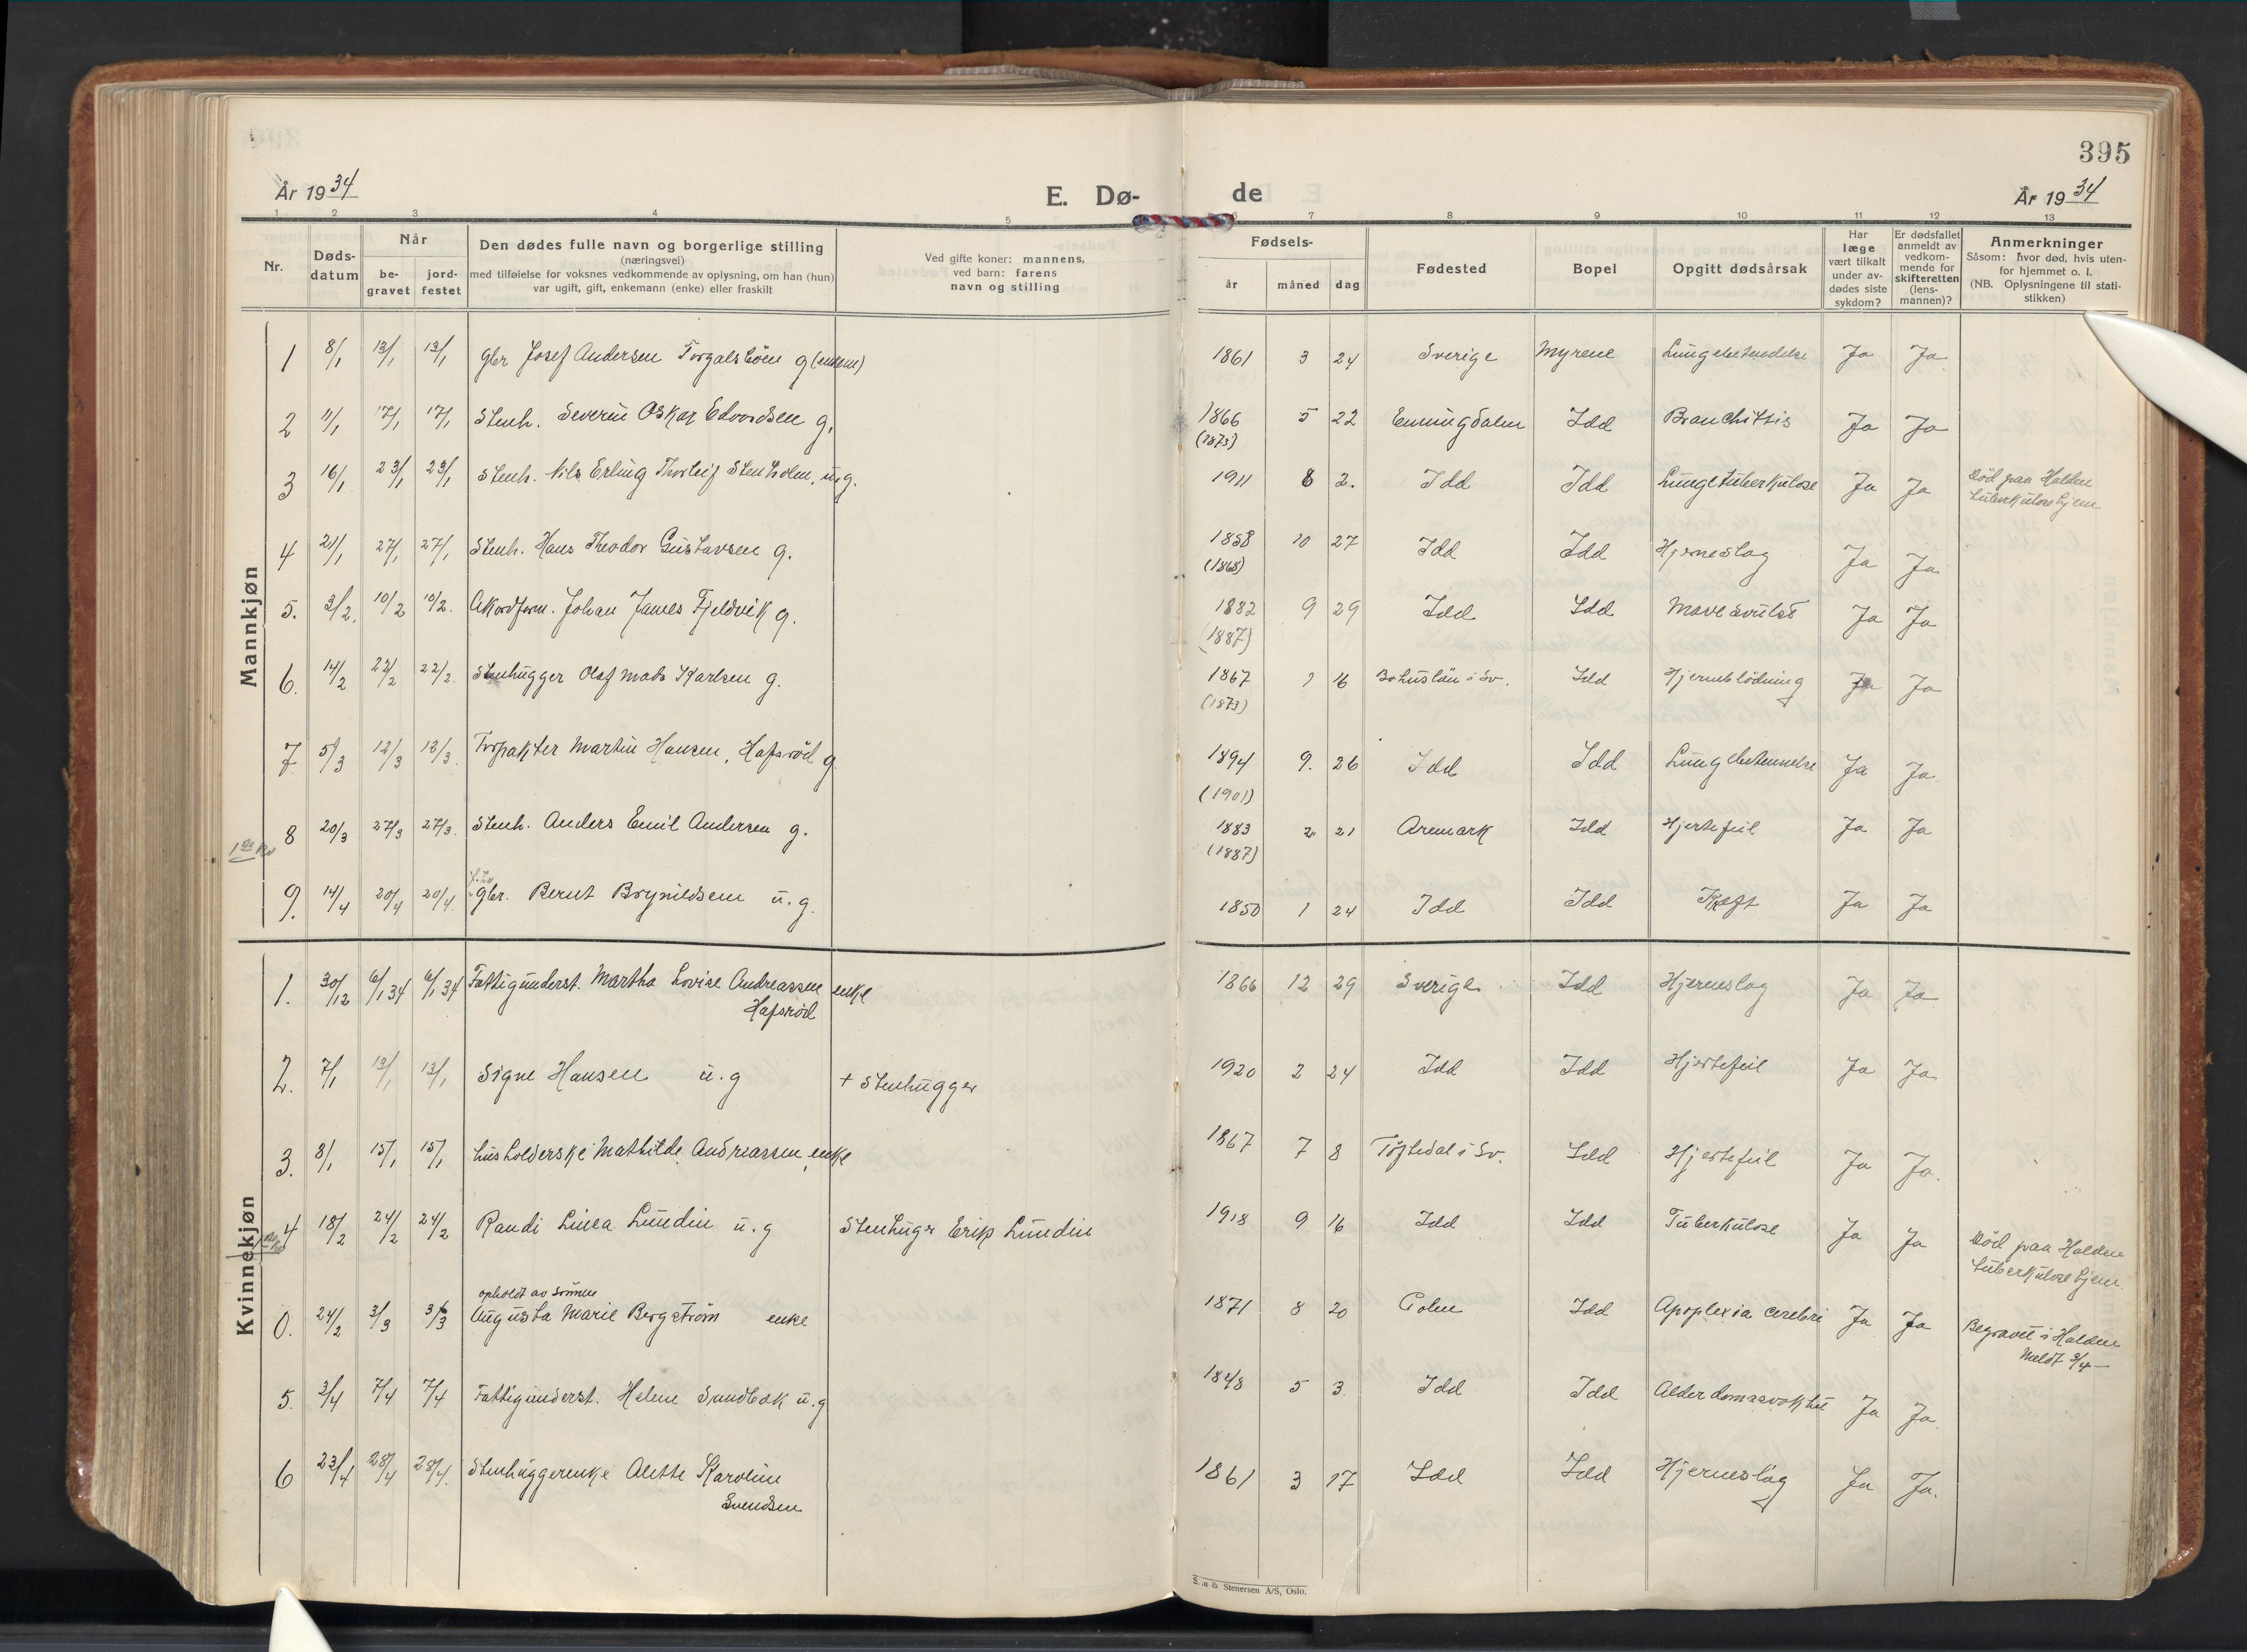 395
År 1934
E. Dø- de
År 1934
1 2 3 4 5 6 7 8 9 10 11 12 13
Nr.
Døds-
datum
Når
be-
gravet
jord-
festet
Den dødes fulle navn og borgerlige stilling
(næringsvei)
med tilføielse for voksnes vedkommende av oplysning, om han (hun)
var ugift, gift, enkemann (enke) eller fraskilt
Ved gifte koner: mannens,
ved barn: farens
navn og stilling
Fødsels-
år måned dag
Fødested
Bopel
Opgitt dødsårsak
Har
læge
vært tilkalt
under av-
dødes siste
sykdom?
Er dødsfallet
anmeldt av
vedkom-
mende for
skifteretten
(lens-
mannen)?
Anmerkninger
Såsom: hvor død, hvis uten-
for hjemmet o. l.
(NB. Oplysningene til stati-
stikken)
Mannkjøn
1 8/1 13/1 13/1 gbr Josef Andersen g (enkem) 1861 3 24 Sverige Myrene Lungebetendelse Ja Ja
2 11/1 17/1 17/1 Stenh. Severin Oskar Edvardsen g. 1866 5 22 Enningdalen Idd Branchittis Ja Ja
(1873)
3 16/1 23/1 23/1 Stenh. Nils Erling Thorleif Stenholm, u.g. 1911 8 2. Idd Idd Lungetuberkulose Ja Ja Död paa Halden
tuberkulosehjem
4 21/1 27/1 27/1 Stenh. Hans Theodor Gustavsen g. 1858 10 27 Idd Idd Hjerneslag Ja Ja
(1868)
5. 3/2. 10/2 10/2. Akordform. Johan James Fjeldvik g. 1882 9 29 Idd Idd Mavesvulst Ja Ja
(1887)
6. 14/2 22/2 22/2. Stenhugger Olaf Mads Karlsen g. 1867 1 16 Bohuslän i Sv. Idd Hjerneblödning Ja Ja
(1873)
7 5/3 12/3 12/3. Forpakter Martin Hansen, Hafsröd g 1894 9. 26 Idd Idd Lungebetennelse Ja Ja
(1901)
8 20/3 27/3 27/3. Stenh. Anders Emil Andersen g. 1883 2 21 Aremark Idd Hjertefeil Ja Ja
(1887)
9. 14/4 20/4 20/4. gbr. Bernt Brynildsen u.g. 1850 1 24 Idd Idd Kræft Ja Ja
Kvinnekjøn
1. 30/12 6/1 34 6/1 34 Fattigunderst. Martha Lovise Andreassen enke 1866 12 29 Sverige Idd Hjerneslag Ja Ja
Hafsröd
2. 7/1 13/1 13/1 Signe Hansen u.g + Stenhugger 1920 2 24 Idd Idd Hjertefeil Ja Ja
3. 8/1 15/1 15/1 husholderske Mathilde Andreassen, enke 1867 7 8 Töftedal i Sv. Idd Hjertefeil Ja Ja.
4 18/2 24/2 24/2 Randi Linea Lundin u.g Stenhugr Erik Lundin 1918 9 16 Idd Idd Tuberkulose Ja Ja Död paa Halden
tuberkulosehjem
opholdt av sönnen
0. 24/2 3/3 3/3 Augusta Marie Bergström enke 1871 8 20 Idd Apoplexia cerebri Ja Ja Begravet i Halden
Meldt 3/4
5. 3/4 7/4 7/4 Fattigunderst. Helene Sundbæk u.g 1848 5 3 Idd Idd Alderdomssvakhet Ja Ja
6 23/4 28/4 28/4. Stenhuggerenke Alette Karoline 1861 3 17 Idd Idd Hjerneslag Ja Ja.
Svendsen
& Stenersen A/S, Oslo.